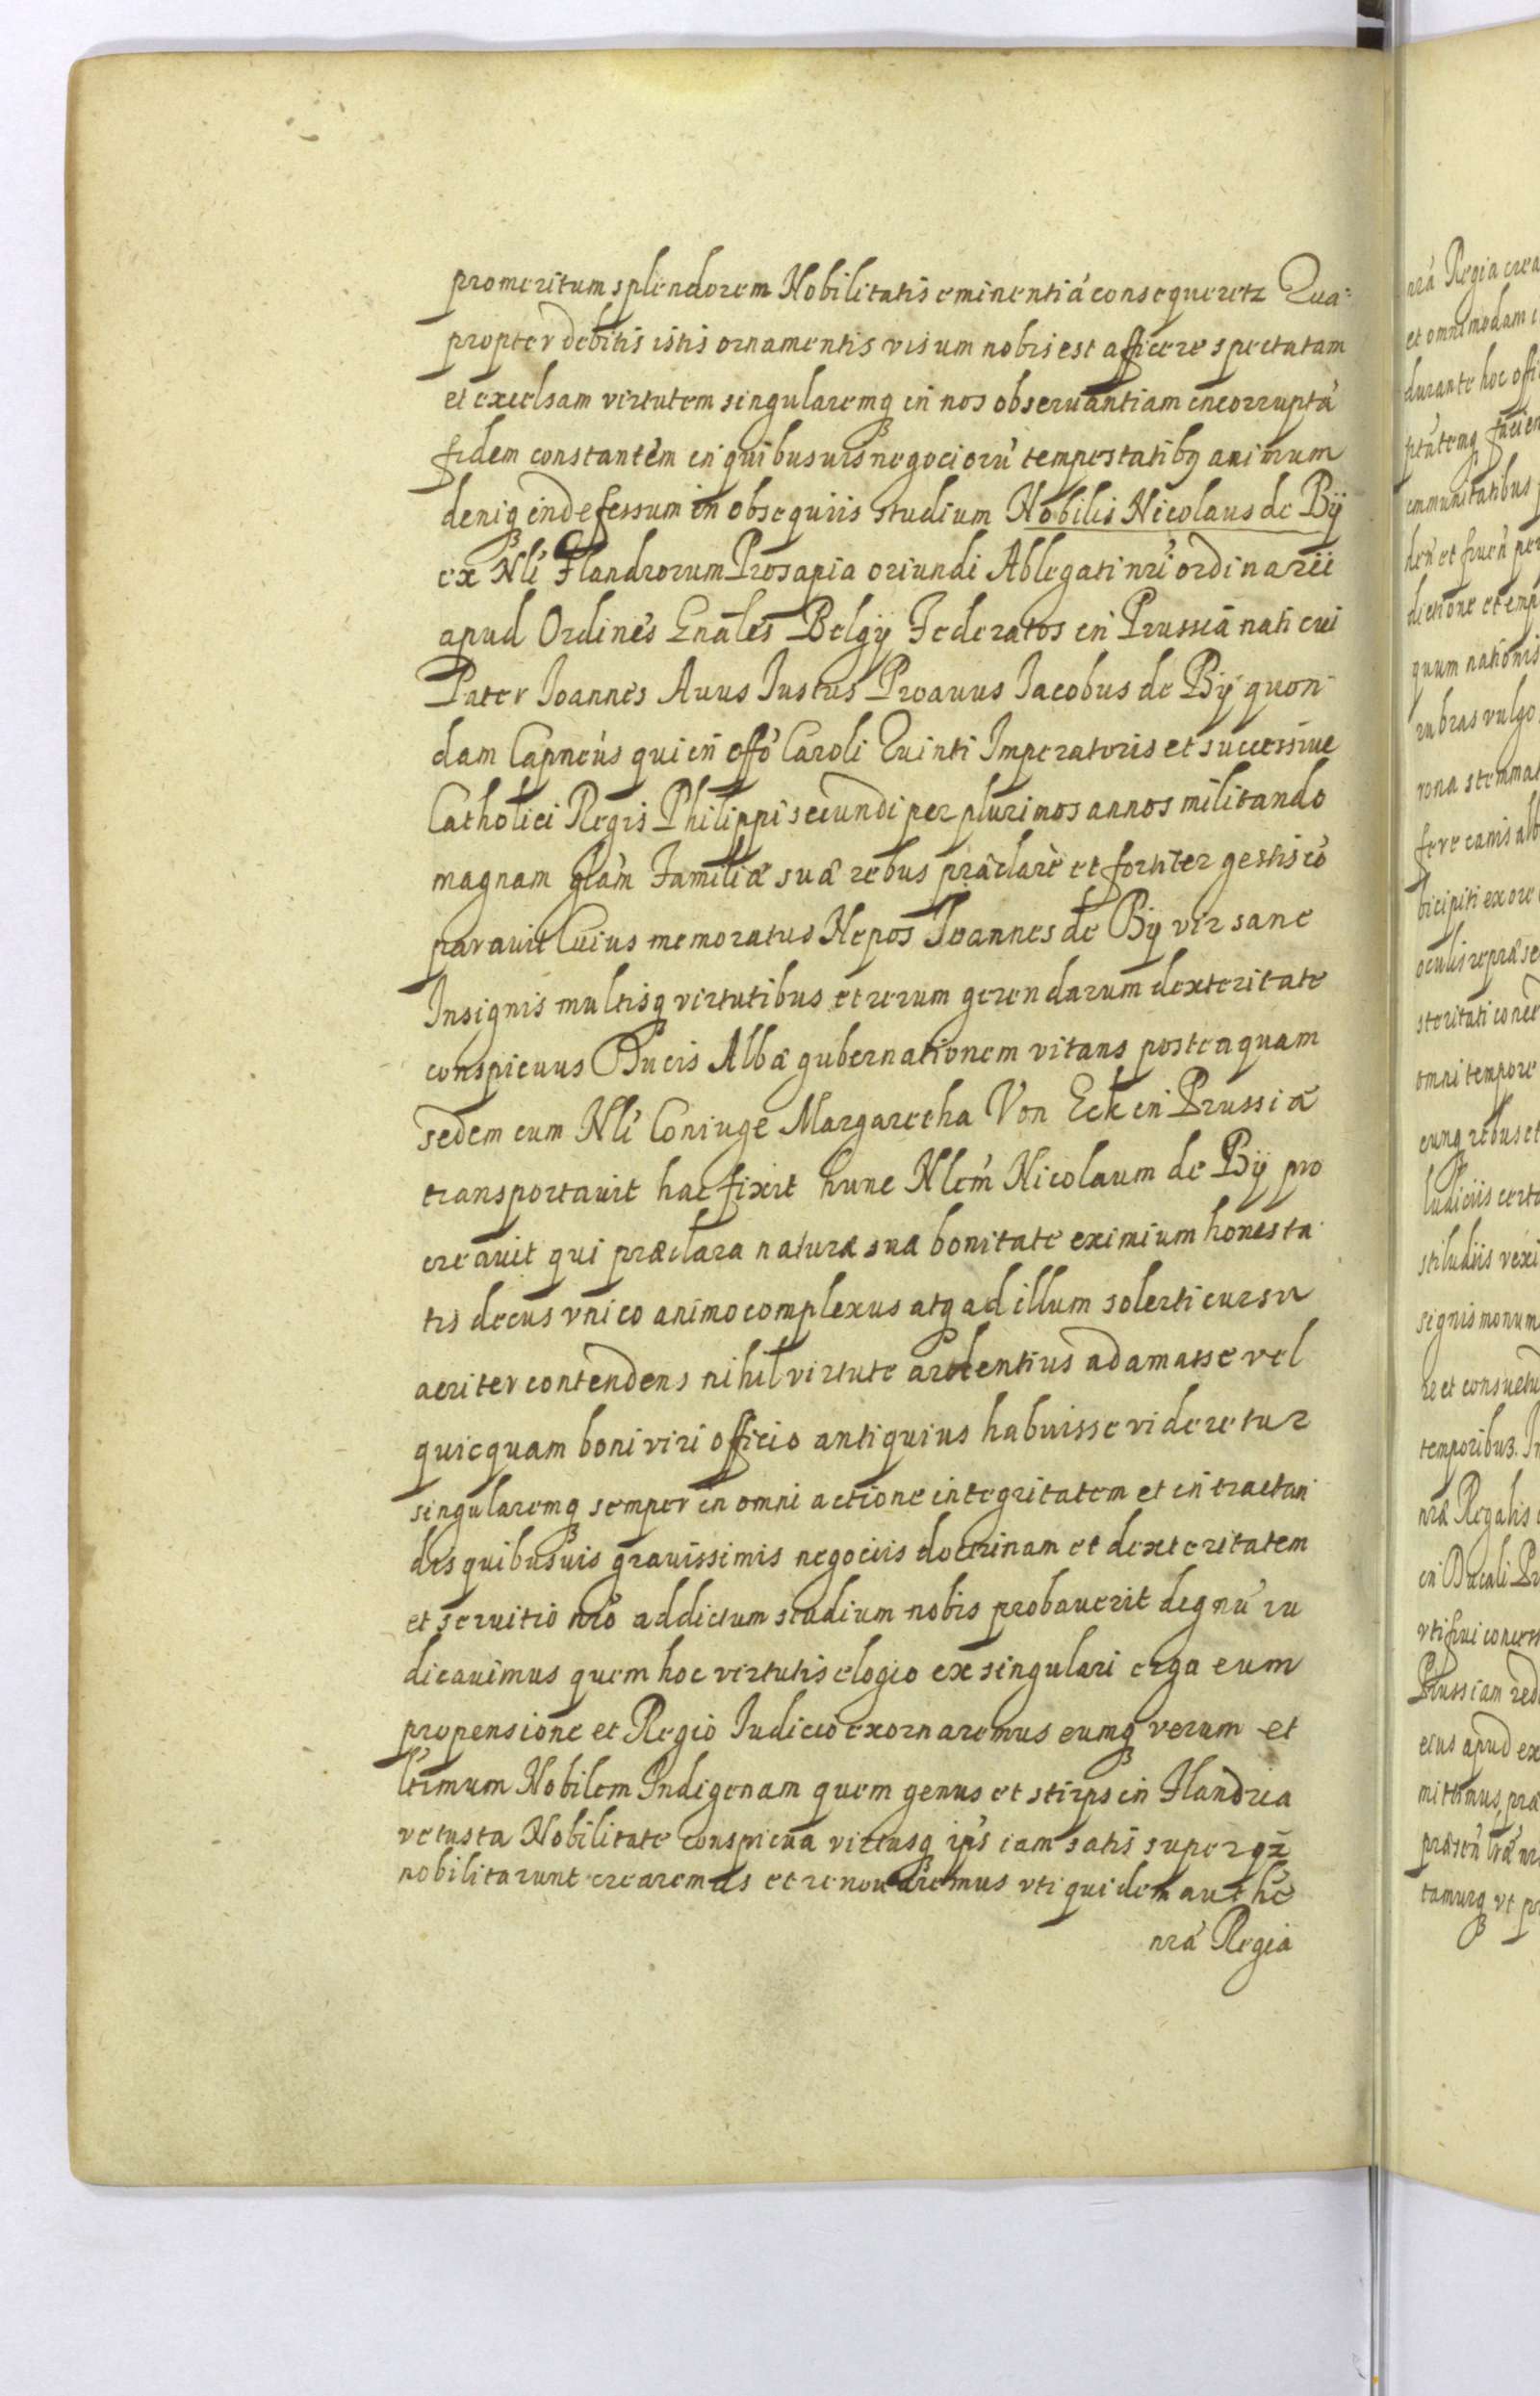 promeritum splendorem Nobilitatis eminentiá consequeretz Qua-
propter debitis istis ornamentis visum nobis est afficere spectatam
et excelsam virtutem singularemq in nos obseruantiam incorruptá
fidem constantem in quibusuis negociorú tempestatibq animum
deniq indefessum in obsequiis studium Nobilis Nicolaus de Bÿ
ex Nli Flandrorum Prosapia oriundi Ablegati nri ordinarii
apud Ordines Gnales Belgÿ Federatos in Prussiâ nati cui
Pater Ioannes Auus Iustus Proauus Iacobus de Bÿ quon-
dam Capneus qui in offo Caroli Quinti Imperatoris et successiue
Catholici Regis Philippi secundi per plurimos annos militando
magnam glám Familiæ suæ rebus præclarè et fortiter gestis có
parauit Cuius memoratus Nepos Ioannes de Bÿ vir sane
Insignis multisq virtutibus et rerum gerendarum dexteritate
conspicuus Ducis Albæ gubernationem vitans posteaquam
sedem cum Nli Coniuge Margaretha Von Eck in Prussiã
transportauit hac fixit hunc Nlem Nicolaum de Bÿ pro
creauit qui præclara naturæ suæ bonitate eximium honesta
tis decus vnico animo complexus atq ad illum solerti cursu
acriter contendens nihil virtute ardentius adamasse vel
quicquam boni viri officio antiquius habuisse videretur
singularemq semper in omni actione integritatem et in tractan
dis quibusuis grauissimis negociis doctrinam et dexteritatem
et seruitio nro addictum studium nobis probauerit dignú iu
dicauimus quem hoc virtutis elogio ex singulari erga eum
propensione et Regio Iudicio exornaremus eumq verum et
ltimum Nobilem Indigenam quem genus et stirps in Flandria
vetusta Nobilitate conspicua virtusq ips iam satis superqz
nobilitarunt crearemus et renouaremus vti quidem auth é
nrá Regia
nrá Regia crea
et omnimodam
durante hoc offi
facien
immunitatibus
den et fruen per
ditione et imp
quum nationis
rubras vulgo
rona stemma
fere canis alb
bicipiti ex ore
oculis repræse
steritati conced
omni tempore
cunq rebus et
Iudiciis certa
stiludiis vexi
signis monum
re et consuetu
temporibus. In
nræ Regalis
in Ducali Pr
vti frui concess
Prussiam red
eius apud ex
mittimus, præ
tamurq vt pr